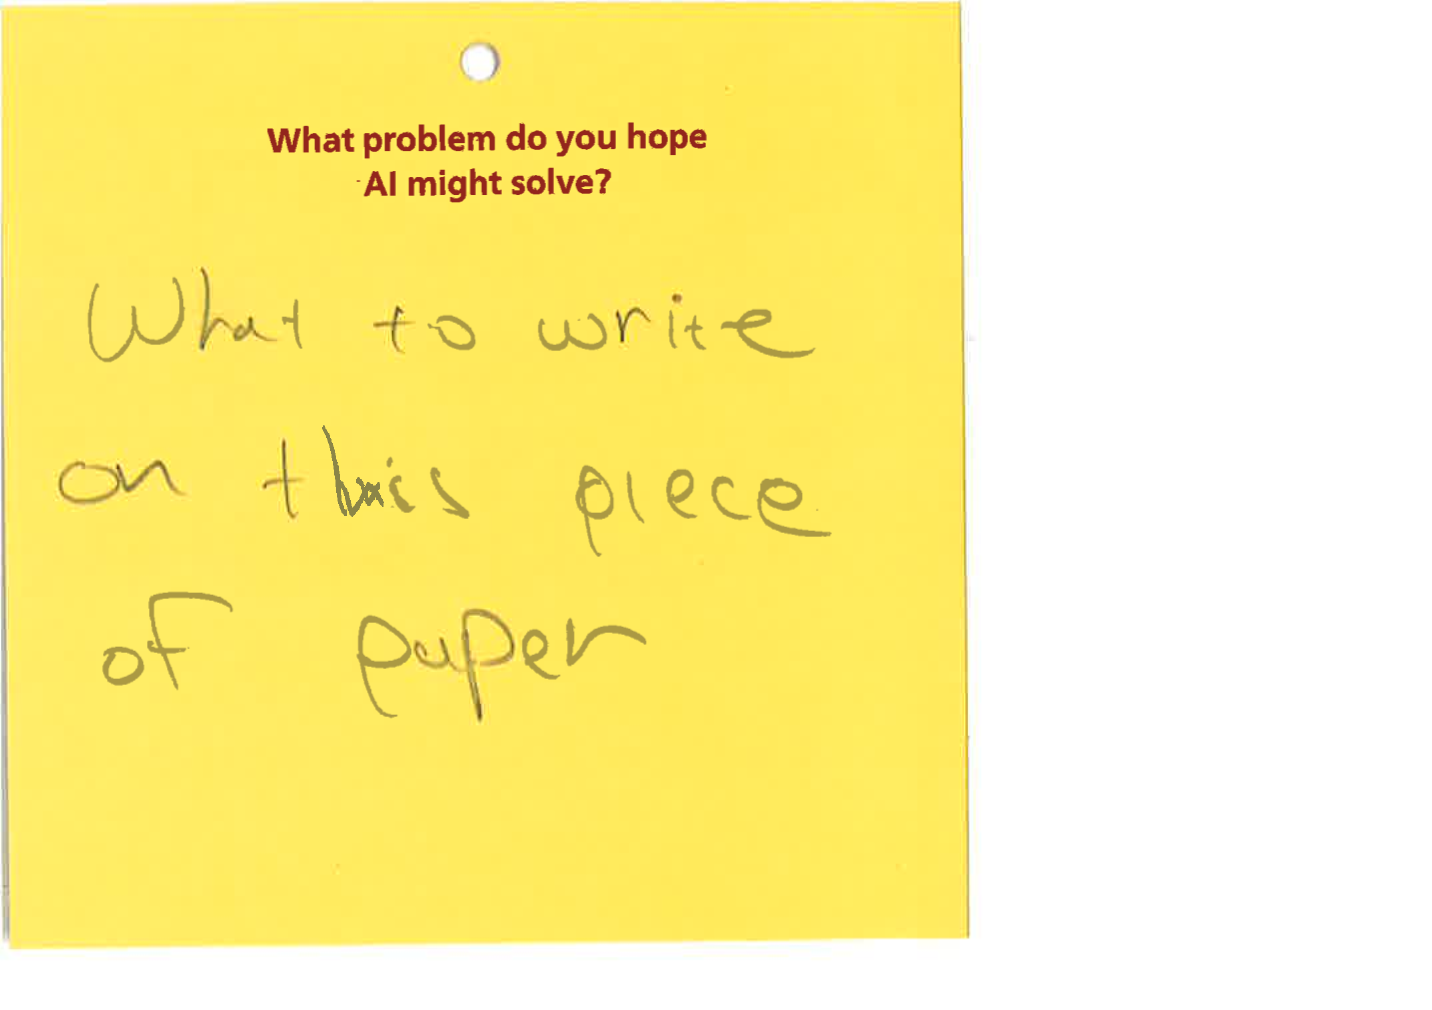 What problem do you hope
AI might solve?
What to write
on this piece
of paper